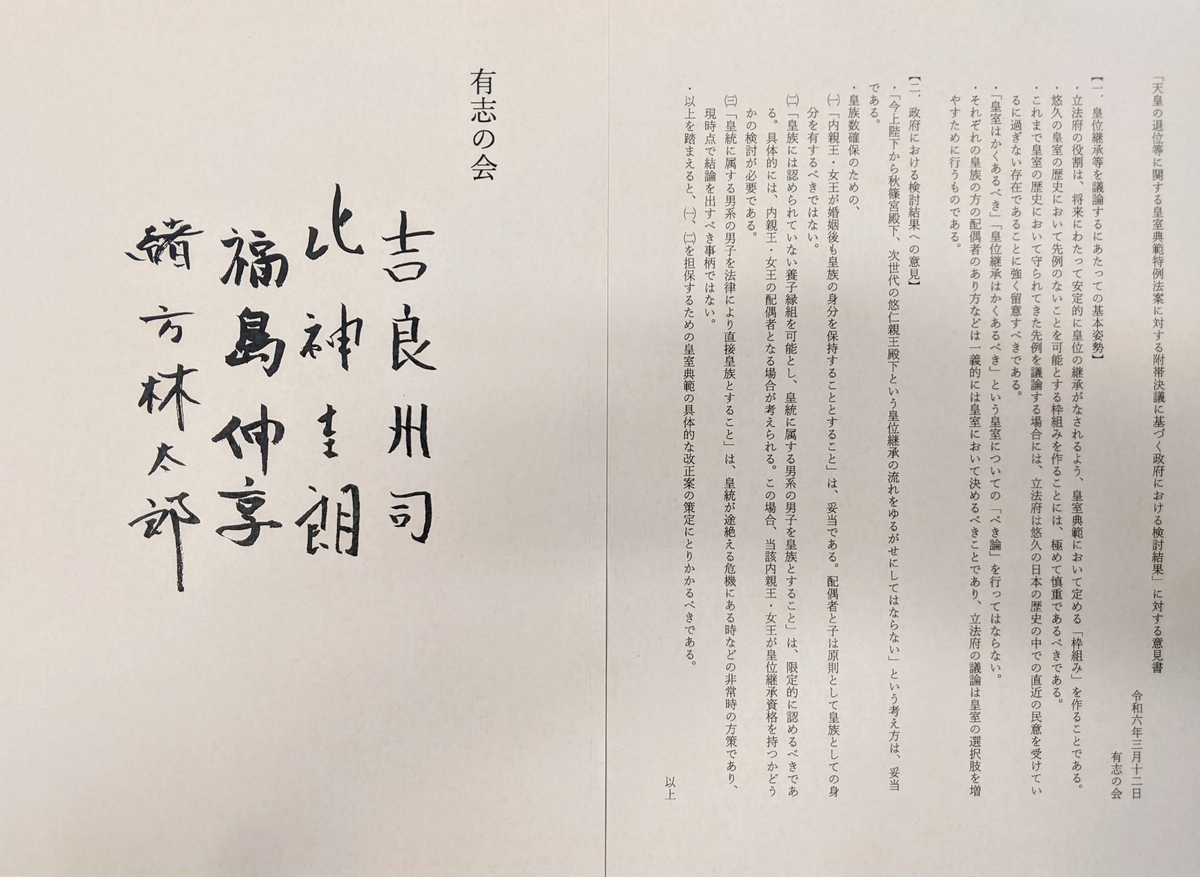 「天皇の退位等に関する皇室典範特例法案に対する附帯決議に基づく政府における検討結果」に対する意見書
令和六年三月十二日
有志の会
【一．皇位継承等を議論するにあたっての基本姿勢】
・立法府の役割は、将来にわたって安定的に皇位の継承がなされるよう、皇室典範において定める「枠組み」を作ることである。
・悠久の皇室の歴史において先例のないことを可能とする枠組みを作ることには、極めて慎重であるべきである。
・これまで皇室の歴史において守られてきた先例を議論する場合には、立法府は悠久の日本の歴史の中での直近の民意を受けてい
るに過ぎない存在であることに強く留意すべきである。
・「皇室はかくあるべき」「皇位継承はかくあるべき」という皇室についての「べき論」を行ってはならない。
・それぞれの皇族の方の配偶者のあり方などは一義的には皇室において決めるべきことであり、立法府の議論は皇室の選択肢を増
やすために行うものである。
【二．政府における検討結果への意見】
・「今上陛下から秋篠宮殿下、次世代の悠仁親王殿下という皇位継承の流れをゆるがせにしてはならない」という考え方は、妥当
である。
・皇族数確保のための、
㈠「内親王・女王が婚姻後も皇族の身分を保持することとすること」は、妥当である。配偶者と子は原則として皇族としての身
分を有するべきではない。
㈡「皇族には認められていない養子縁組を可能とし、皇統に属する男系の男子を皇族とすること」は、限定的に認めるべきであ
る。具体的には、内親王・女王の配偶者となる場合が考えられる。この場合、当該内親王・女王が皇位継承資格を持つかどう
かの検討が必要である。
㈢「皇統に属する男系の男子を法律により直接皇族とすること」は、皇統が途絶える危機にある時などの非常時の方策であり、
現時点で結論を出すべき事柄ではない。
・以上を踏まえると、㈠、㈡を担保するための皇室典範の具体的な改正案の策定にとりかかるべきである。
以上
有志の会
吉良州司
北神圭朗
福島伸享
緒方林太郎